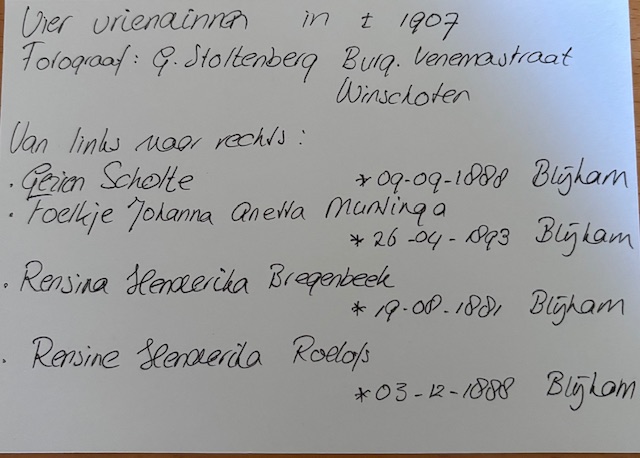 Vier vriendinnen in ± 1907
Fotograaf: G. Stoltenberg Burg. Venemastraat
Winschoten
Van links naar rechts:
• Gezien Scholte *09-09-1888 Blijham
• Foelkje Johanna Anetta Muntinga
*26-04-1893 Blijham
• Rensina Henderika Bregenbeek
*19-08-1881 Blijham
• Rensine Henderika Roelofs
*03-12-1888 Blijham